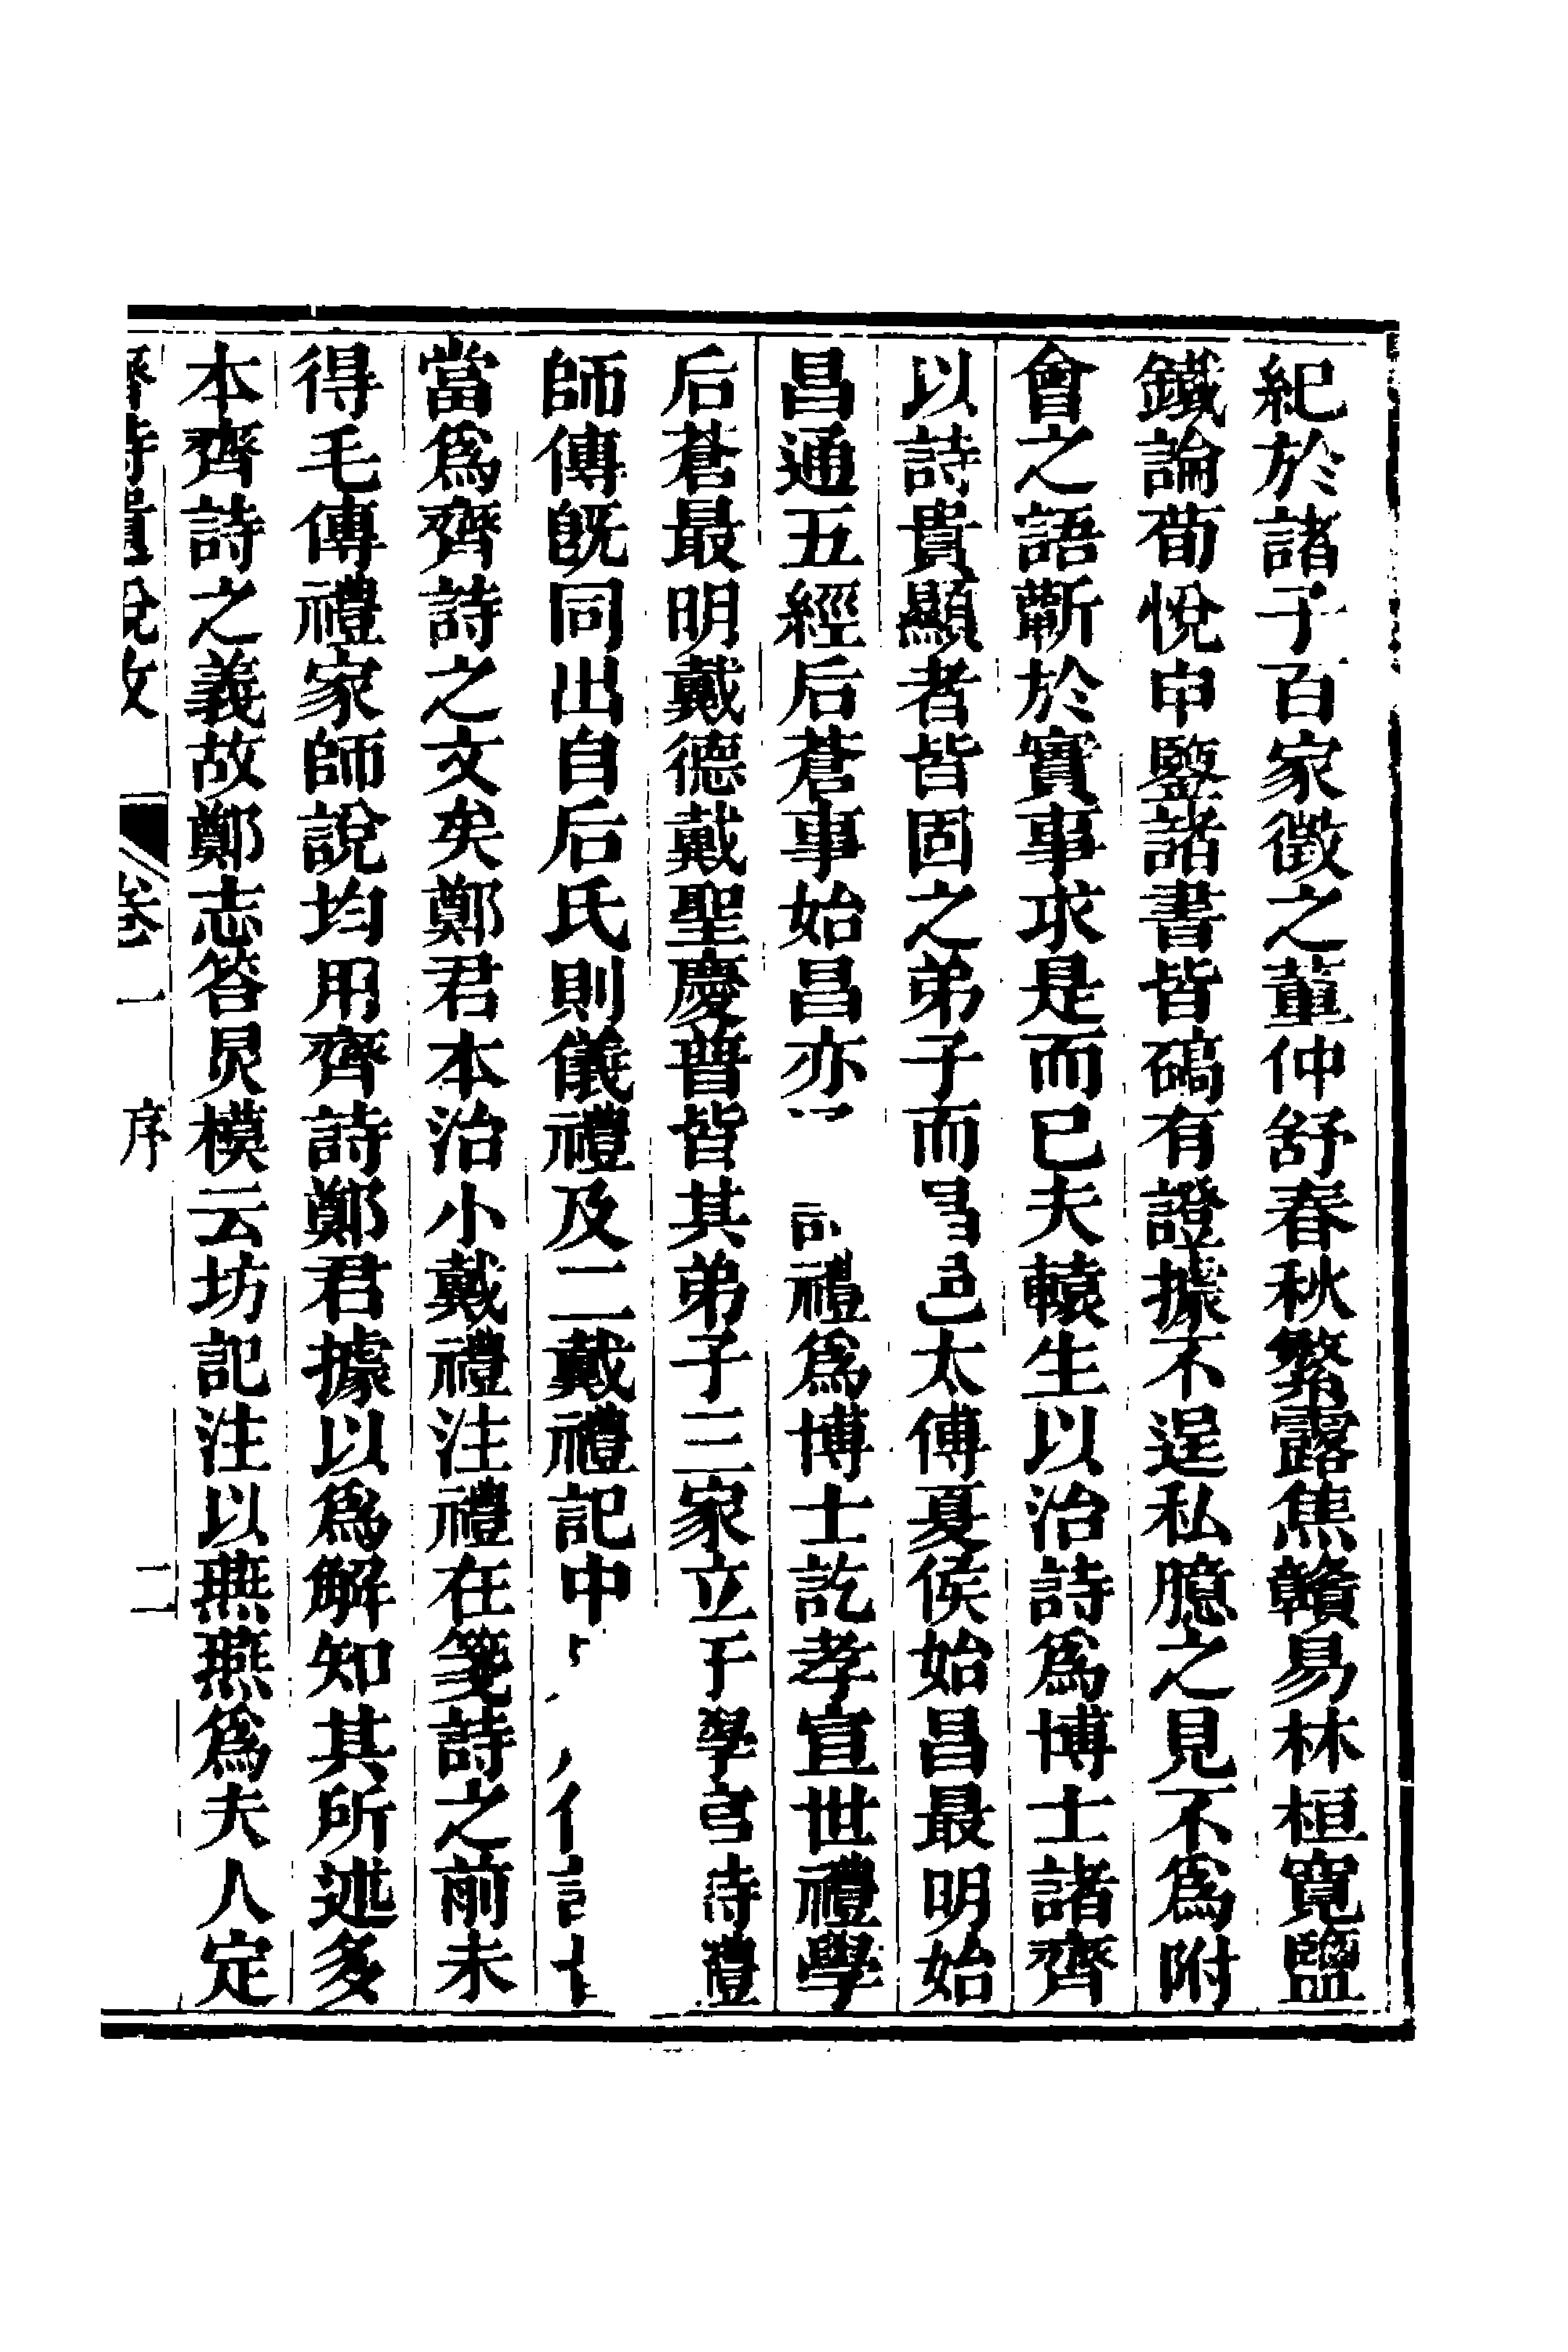 紀於諸子百家徵之董仲舒春秋繁露焦贛易林桓寬鹽
鐵論荀悅申鑒諸書皆碻有證據不逞私臆之見不為附
會之語蘄於實事求是而已夫轅生以治詩為博士諸齊
以詩貴顯者皆固之弟子而昌邑太傅夏侯始昌最明始
昌通五經后蒼事始昌亦禮為博士訖孝宣世禮學
后蒼最明戴德戴聖慶普皆其弟子三家立于學官詩禮
師傳既同出自后氏則儀禮及二戴禮記中
當為齊詩之文矣鄭君本治小戴禮注禮在箋詩之前未
得毛傳禮家師說均用齊詩鄭君據以為解知其所述多
本齊詩之義故鄭志答炅模云坊記注以燕燕為夫人定
齊詩遺說攷 卷一 序 二